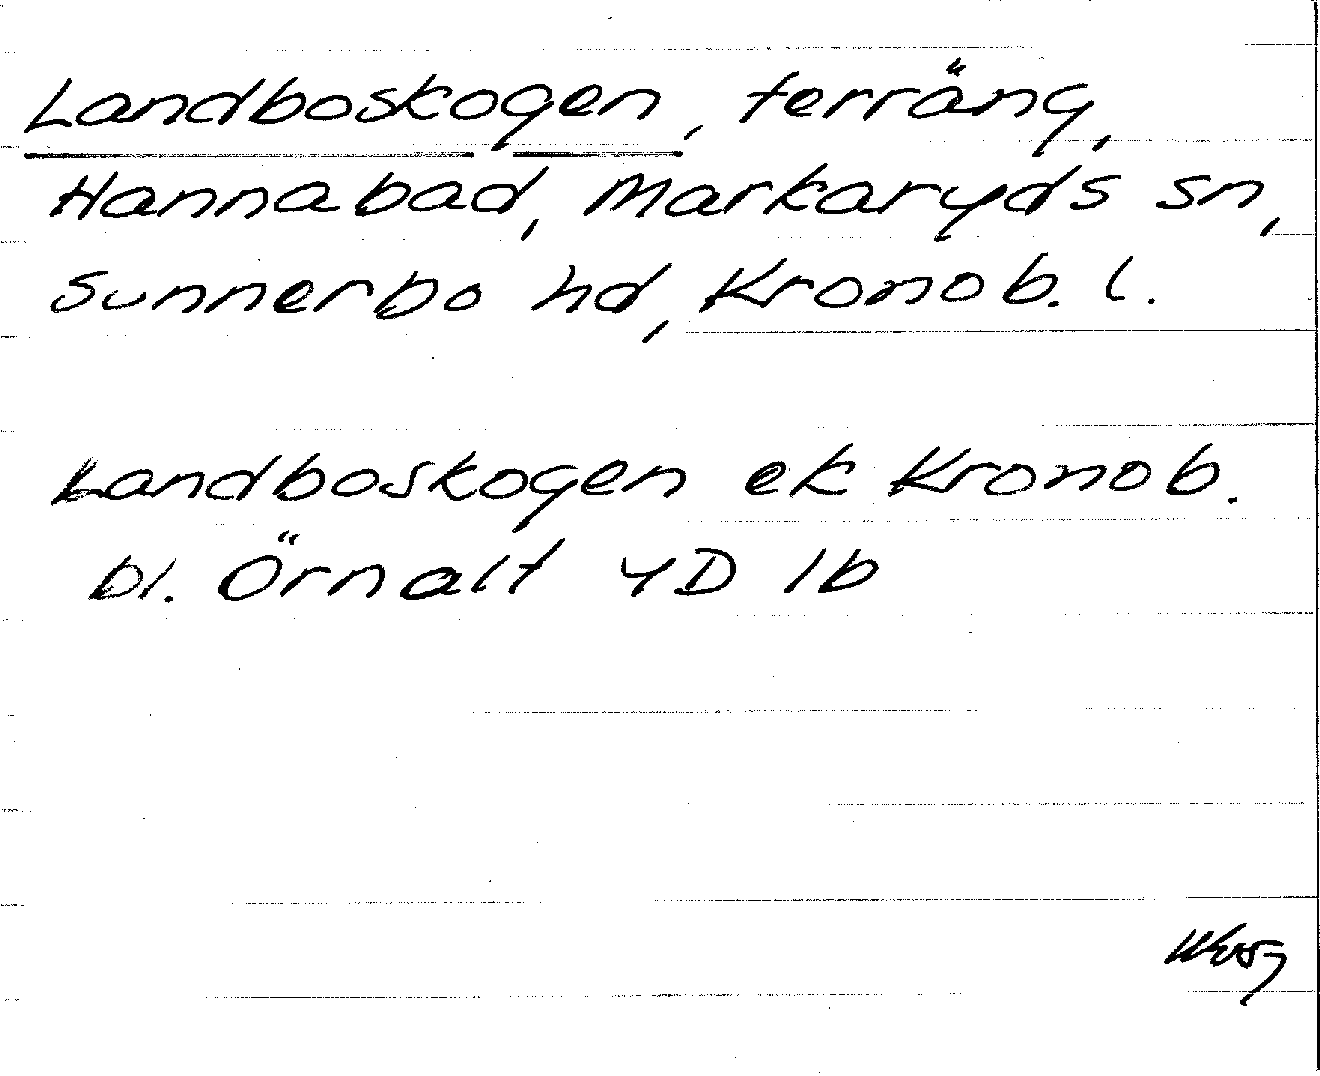 Landboskogen, terräng,
Hannabad, Markaryds sn,
Sunnerbo hd, Kronob. l.
Landboskogen ek Kronob.
bl. Örnalt 4D 1b